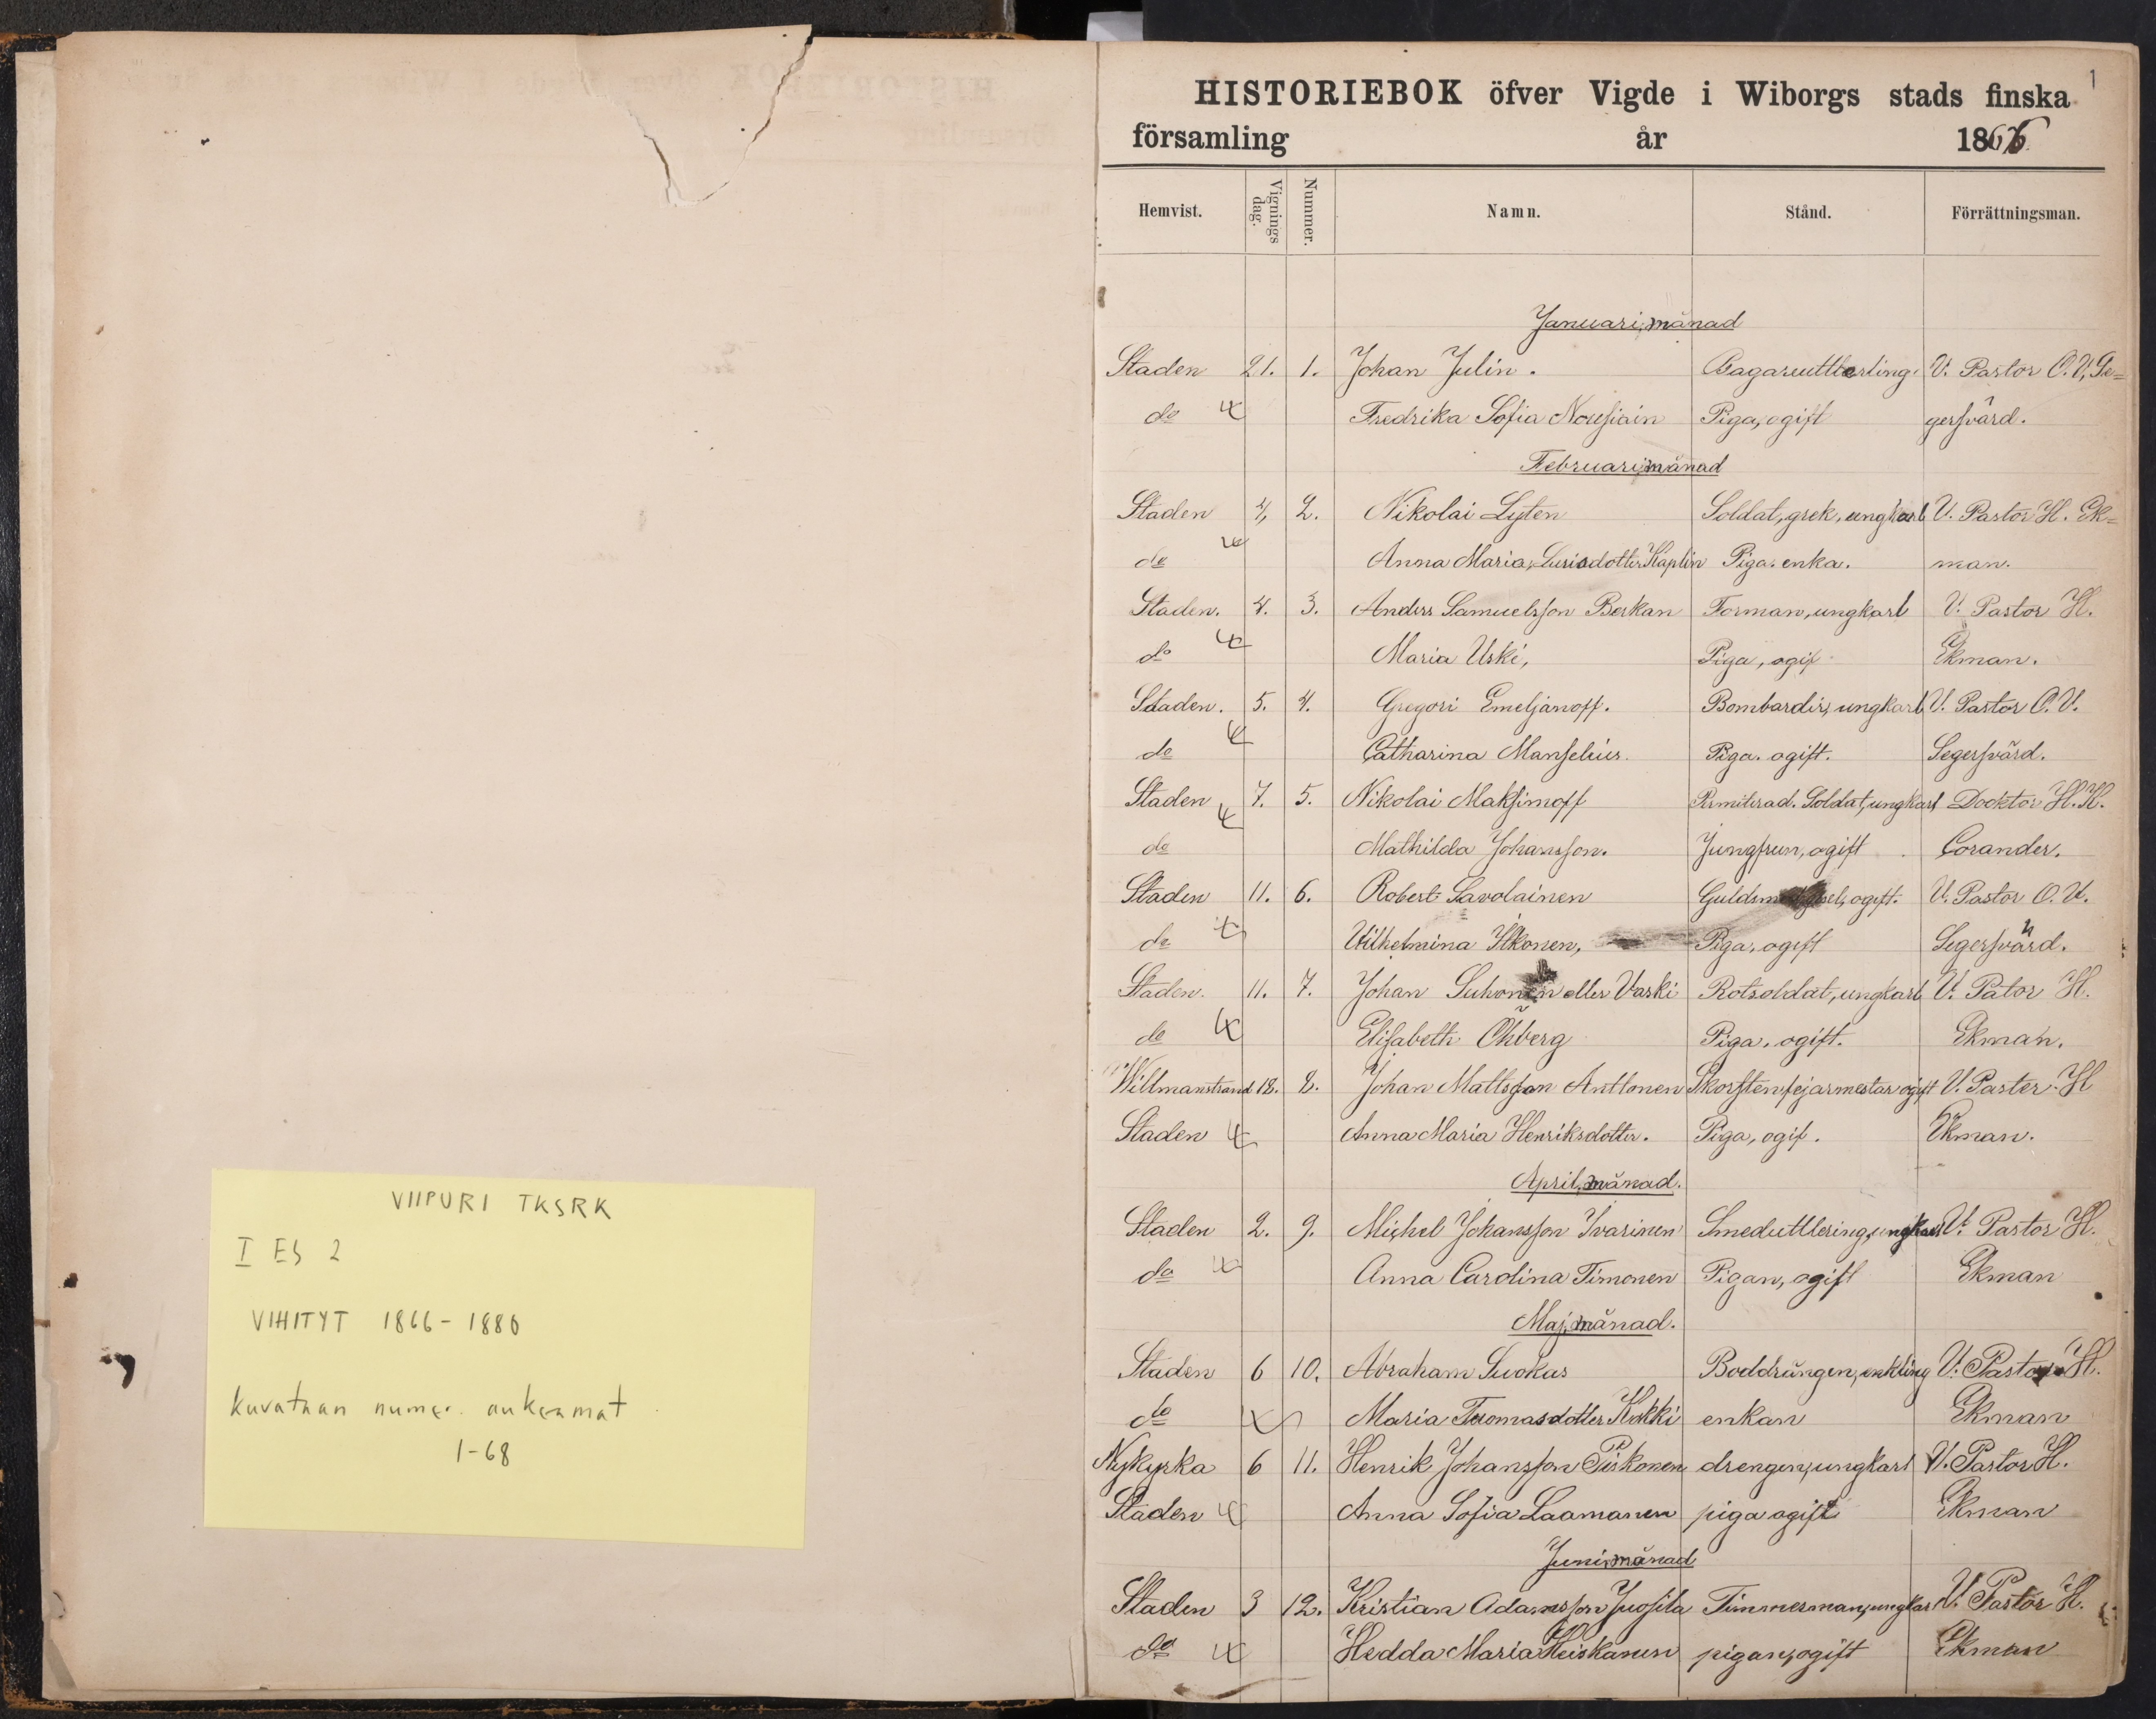 VIIPURI TKSRK
I ES 2
VIHITYT 1866-1880
kuvataan numer. aukeamat
1-68
1
HISTORIEBOK öfver Vigde i Wiborgs stads finska
församling år 1866
Hemvist. Vignings dag. Nummer. Namn. Stånd. Förrättningsman.
Januari, månad
Staden 21. 1. Johan Julin. Bagareuttlerling. V. Pastor O.V, Se=
do Fredrika Sofia Nousiain Piga, ogift gersvärd.
Februari, månad
Staden 4, 2. Nikolai Lyten Soldat, grek, ungkarl V. Pastor H. Ek=
do Anna Maria, Kaplin Piga. enka. man.
Staden. 4. 3. Anders Samuelsson Berkan Forman, ungkarl V. Pastor H.
do Maria Uski, Piga, ogif Ekman.
Staden. 5. 4. Gregori Emeljanoff. Bombardir, ungkarl V. Pastor O.V.
do Catharina Manselius. Piga. ogift. Segersvärd.
Staden 7. 5. Nikolai Maksimoff Permiterad. Soldat, ungkarl Docktor H.K.
do Mathilda Johansson. Jungfrun, ogift Corander.
Staden 11. 6. Robert Savolainen ogift. V. Pastor O.V.
do Wilhelmina Ikonen, Piga, ogift Segersvärd.
Staden. 11. 7. Johan Suhonen eller Vaski Rotsoldat, ungkarl V. Pator H.
do Elisabeth Öhberg Piga. ogift. Ekman.
Willmanstrand 12. 8. Johan Mattsson Anttonen Skorstensfejarmestar ogift V. Paster H
Staden Anna Maria Henriksdotter. Piga, ogif. Ekman.
April, månad.
Staden 2. 9. Michel Johansson Ivarinen Smeduttlering, ungkarl V. Pastor H.
do Anna Carolina Timonen Pigan, ogift Ekman
Maj, månad.
Staden 6 10. Abraham Suokas Boddrängen, enkling V. Pastor H.
do Maria Tuomasdotter Kukki enkan Ekman
Nykyrka 6 11. Henrik Johansson Piskonen drengen, ungkarl V. Pastor H.
Staden Anna Sofia Laamanen piga ogift Ekman
Juni, månad
Staden 3 12. Kristian Adamsson Juosila Timmerman, ungkarl V. Pastor H.
do Hedda Maria Heiskanen pigan, ogift Ekman